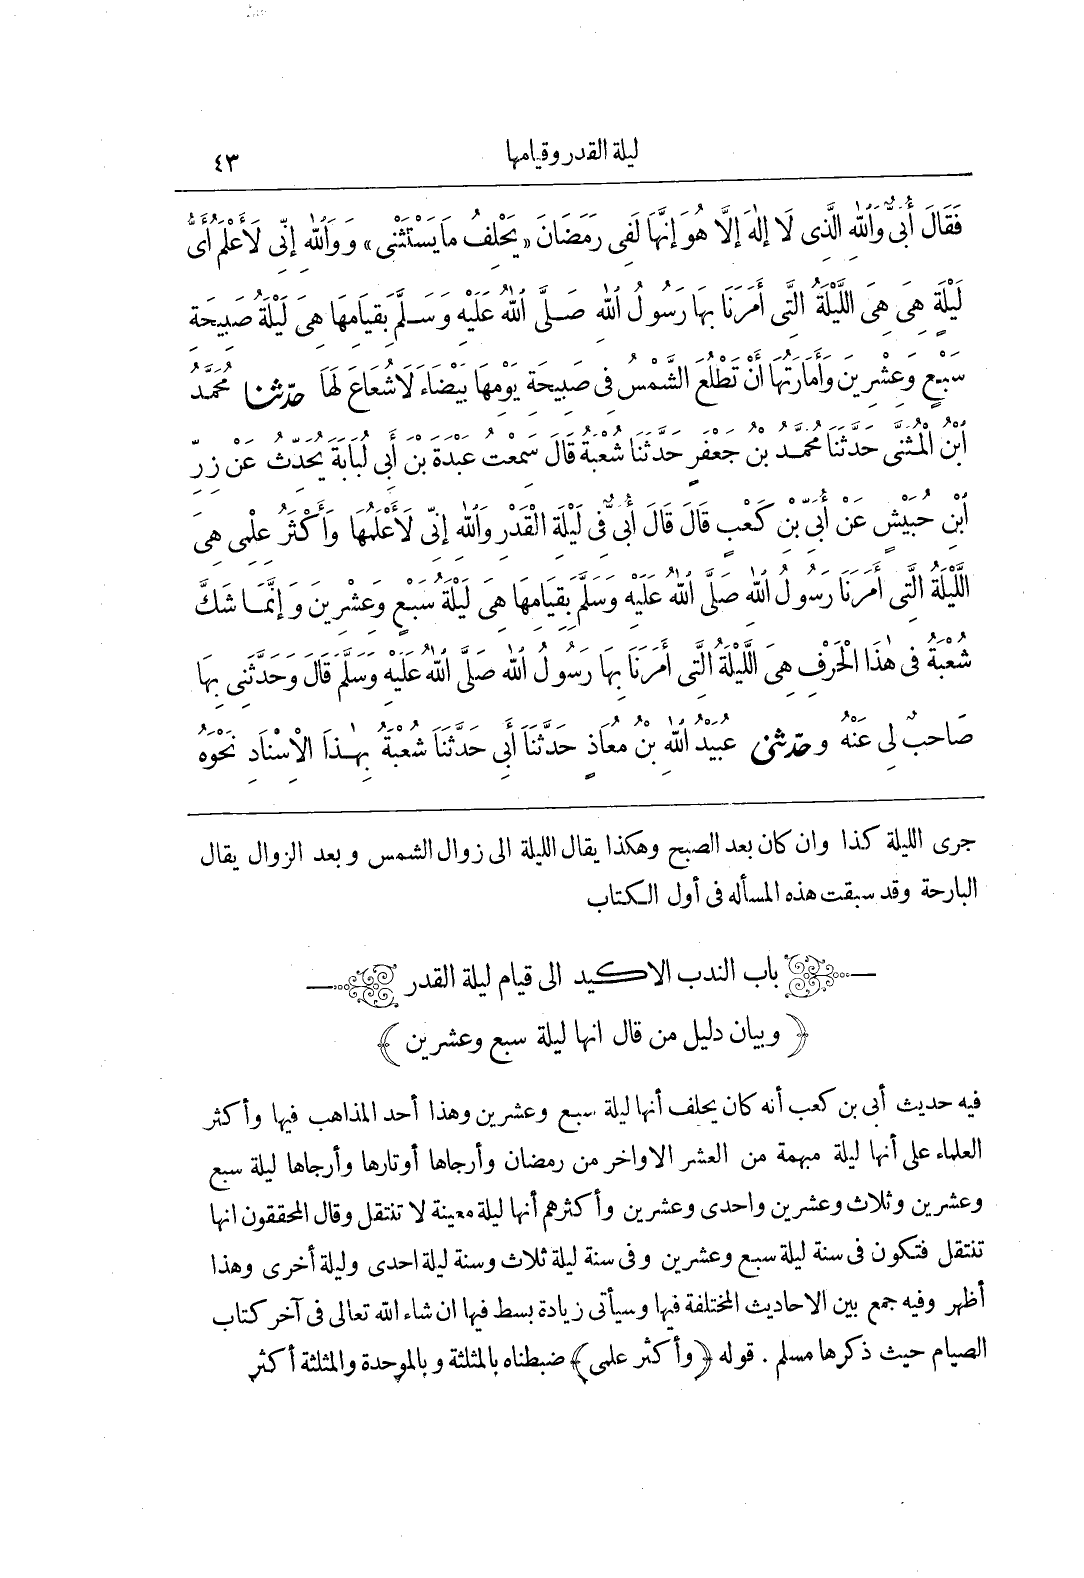 ليلة القدر وقيامها ٤٣
فَقَالَ أُبَيٌّ وَاللهِ الَّذِى لَا إِلٰهَ إِلَّا هُوَ إِنَّهَا لَفِى رَمَضَانَ «يَحْلِفُ مَا يَسْتَثْنِى» وَوَاللهِ إِنِّى لَأَعْلَمُ أَىُّ
لَيْلَةٍ هِىَ هِىَ اللَّيْلَةُ الَّتِى أَمَرَنَا بِهَا رَسُولُ اللهِ صَلَّى اللهُ عَلَيْهِ وَسَلَّمَ بِقِيَامِهَا هِىَ لَيْلَةُ صَبِيحَةِ
سَبْعٍ وَعِشْرِينَ وَأَمَارَتُهَا أَنْ تَطْلُعَ الشَّمْسُ فِى صَبِيحَةِ يَوْمِهَا بَيْضَاءَ لَا شُعَاعَ لَهَا حدّثنا مُحَمَّدُ
ابْنُ الْمُثَنَّى حَدَّثَنَا مُحَمَّدُ بْنُ جَعْفَرٍ حَدَّثَنَا شُعْبَةُ قَالَ سَمِعْتُ عَبْدَةَ بْنَ أَبِى لُبَابَةَ يُحَدِّثُ عَنْ زِرِّ
ابْنِ حُبَيْشٍ عَنْ أُبَىِّ بْنِ كَعْبٍ قَالَ قَالَ أُبَىٌّ فِى لَيْلَةِ الْقَدْرِ وَاللهِ إِنِّى لَأَعْلَمُهَا وَأَكْثَرُ عِلْمِى هِىَ
اللَّيْلَةُ الَّتِى أَمَرَنَا رَسُولُ اللهِ صَلَّى اللهُ عَلَيْهِ وَسَلَّمَ بِقِيَامِهَا هِىَ لَيْلَةُ سَبْعٍ وَعِشْرِينَ وَإِنَّمَا شَكَّ
شُعْبَةُ فِى هٰذَا الْحَرْفِ هِىَ اللَّيْلَةُ الَّتِى أَمَرَنَا بِهَا رَسُولُ اللهِ صَلَّى اللهُ عَلَيْهِ وَسَلَّمَ قَالَ وَحَدَّثَنِى بِهَا
صَاحِبٌ لِى عَنْهُ وحدّثنى عُبَيْدُ اللهِ بْنُ مُعَاذٍ حَدَّثَنَا أَبِى حَدَّثَنَا شُعْبَةُ بِهٰذَا الْإِسْنَادِ نَحْوَهُ
جرى الليلة كذا وان كان بعد الصبح وهكذا يقال الليلة الى زوال الشمس وبعد الزوال يقال
البارحة وقد سبقت هذه المسأله فى أول الكتاب
باب الندب الاكيد الى قيام ليلة القدر
﴿ وبيان دليل من قال انها ليلة سبع وعشرين ﴾
فيه حديث أبى بن كعب أنه كان يحلف أنها ليلة سبع وعشرين وهذا أحد المذاهب فيها وأكثر
العلماء على أنها ليلة مبهمة من العشر الاواخر من رمضان وأرجاها أوتارها وأرجاها ليلة سبع
وعشرين وثلاث وعشرين واحدى وعشرين وأكثرهم أنها ليلة معينة لا تنتقل وقال المحققون انها
تنتقل فتكون فى سنة ليلة سبع وعشرين وفى سنة ليلة ثلاث وسنة ليلة احدى وليلة أخرى وهذا
أظهر وفيه جمع بين الاحاديث المختلفة فيها وسيأتى زيادة بسط فيها ان شاء الله تعالى فى آخر كتاب
الصيام حيث ذكرها مسلم . قوله ﴿وأكثر علمى﴾ ضبطناه بالمثلثة وبالموحدة والمثلثة أكثر